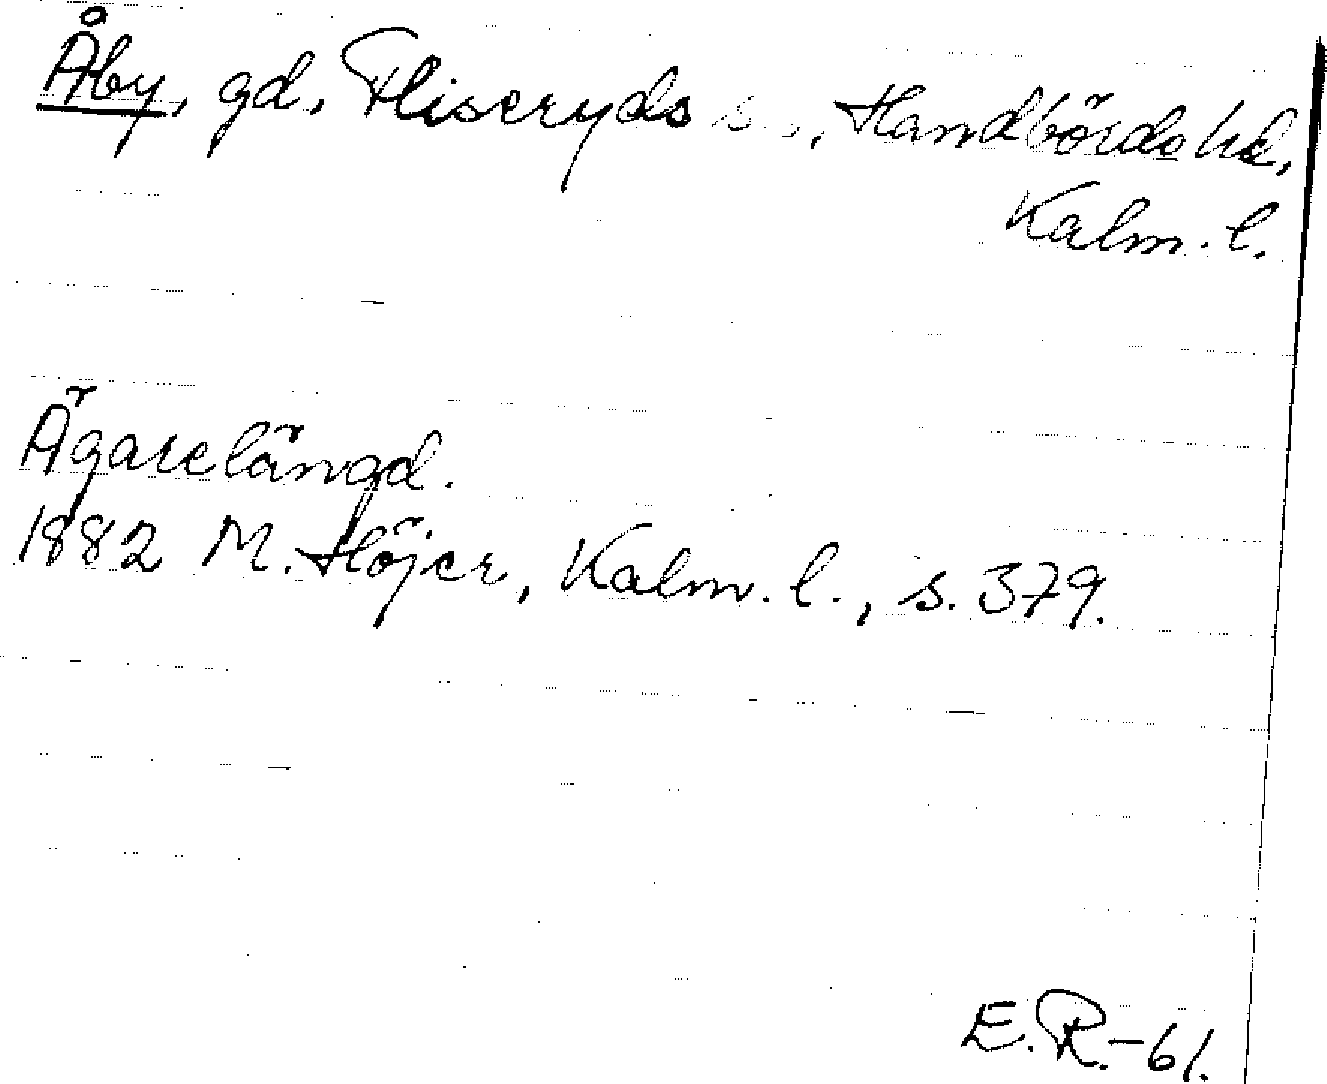 Åby, gd, Fliseryds sn, Handbörds hd,
Kalm. l.
Ägarelängd.
1882 M. Höjer, Kalm. l., s. 379.
E.R.-61.